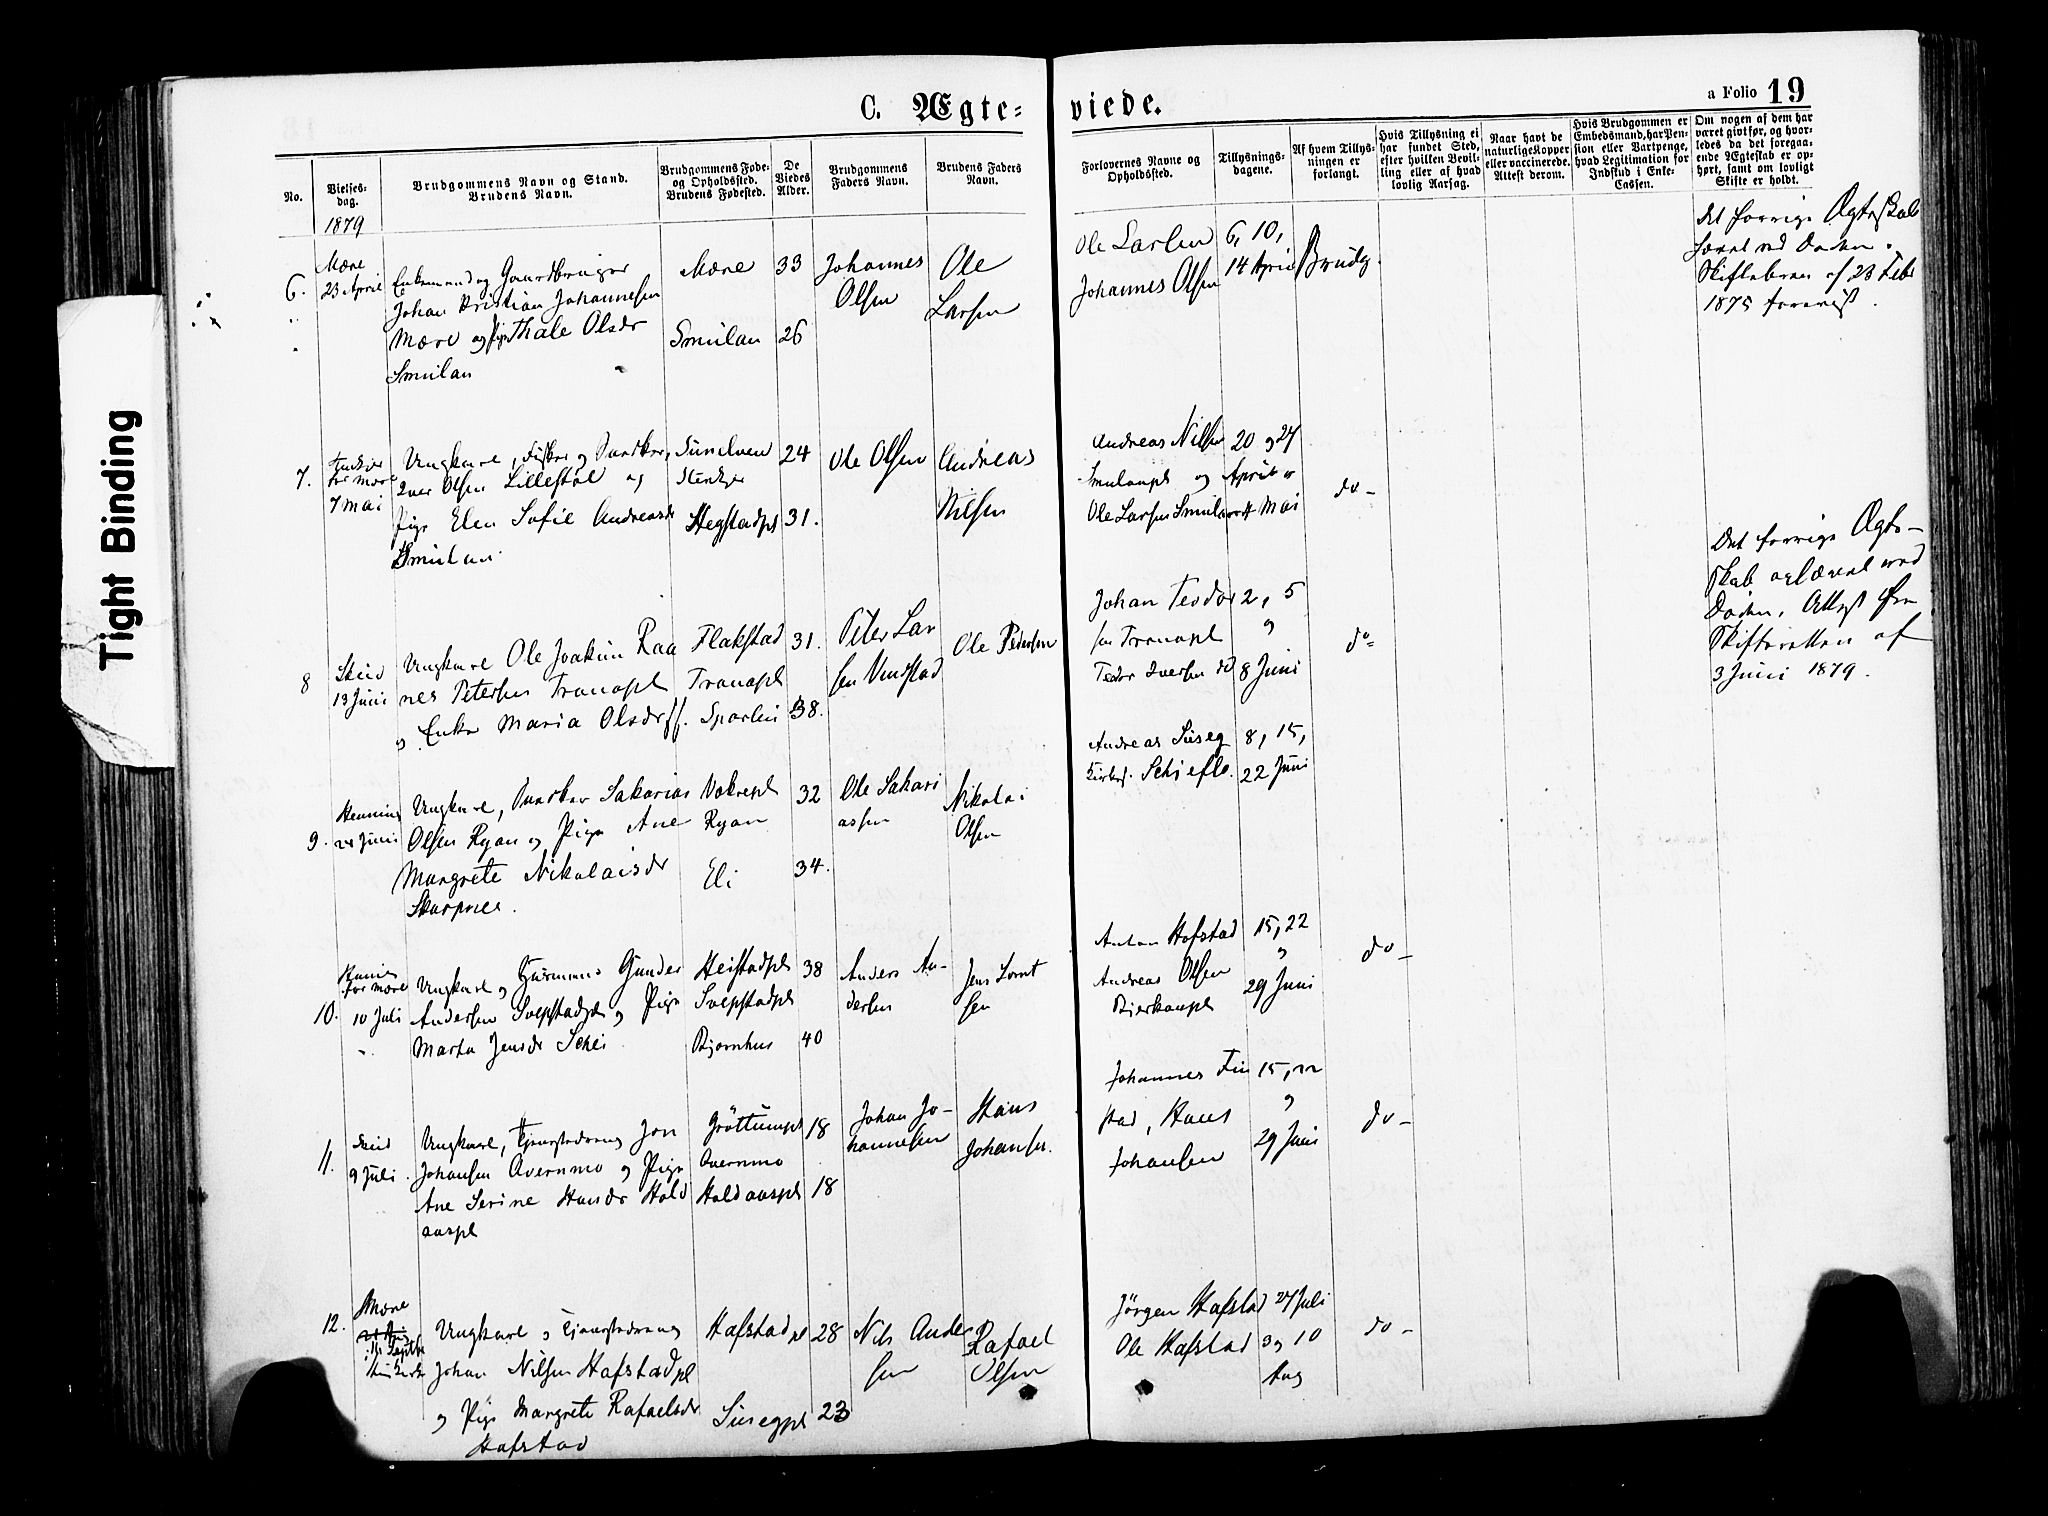 C. Ægte-
viede.
a Folio 19
No.
Vielses-
dag.
Brudgommens Navn og Stand.
Brudens Navn.
Brudgommens Føde-
og Opholdssted.
Brudens Fødested.
De
Viedes
Alder.
Brudgommens
Faders Navn.
Brudens Faders
Navn.
Forlovernes Navne og
Opholdssted.
Tillysnings-
dagene.
Af hvem Tillys-
ningen er
forlangt.
Hvis Tillysning ei
har fundet Sted,
efter hvilken Bevil-
ling eller af hvad
lovlig Aarsag.
Naar havt de
naturlige Kopper
eller vaccinerede.
Attest derom.
Hvis Brudgommen er
Embedsmand, har Pen-
sion eller Vartpenge,
hvad Legitimation for
Indskud i Enke-
Cassen.
Om nogen af dem har
været givt før, og hvor-
ledes da det foregaa-
ende Ægteskab er op-
hørt, samt om lovligt
Skifte er holdt.
1879
6.
Mære
23 April
Enkemand og Gaardbruger
Johan Kristian Johannesen
Mære og Pige Thale Olsdr
Smulan
Mære
Smulan
33
26
Johannes
Olsen
Ole
Larsen
Ole Larsen
Johannes Olsen
6, 10,
14 April
Brudg.
Det forrige Ægteskab
hævet ved Døden.
Skiftebrev af 23 Feb
1875 forevist.
7.
for Mære
7 Mai
Ungkarl, Fisker og
Iver Olsen Lillestøl og
Pige Elen Sofie Andreasdr
Smulan
Stenkjer
Hegstadpl
24
31.
Ole Olsen
Andreas
Nilsen
Andreas Nilsen
Smulanpl og
Ole Larsen Smulan
20 og 27
April og
4 Mai
do-
8
Skeid
13 Juni
Ungkarl Ole Joakim Raa
nes Petersen Tranapl
og Enke Maria Olsdr
Flakstad
Tranapl
31.
38.
Peter Lar
sen Vinstad
Ole Pedersen
Johan Teodor
sen Tranapl
Tedor Iversen do
2, 5
og
8 Juni
do-
Det forrige Ægte-
skab ophævet ved
Døden. Attest fra
Skifteretten af
3 Juni 1879.
9.
Henning
24 Juni
Ungkarl, Sakarias
Olsen Ryan og Pige Ane
Margrete Nikolaisdr
Skarpnes.
Ryan
Eli
32
34.
Ole Sakari
assen
Nikolai
Olsen
Andreas Suseg
8, 15,
22 Juni
10.
for Mære
10 Juli
Ungkarl og Husmand Gunder
Andersen og Pige
Marta Jensdr Schei
Bjørnhus
38
40
Anders An-
dersen
Jens Lornt
sen
Anton Hofstad
Andreas Olsen
15, 22
og
29 Juni
do-
11.
Skeid
9 Juli.
Ungkarl, Tjenestedreng Jon
Johansen Avernmo og Pige
Ane Serine Hansdr Hold
aaspl
Grøttumpl
Avernmo
Holdaaspl
18
18
Johan Jo-
hannesen
Hans
Johansen.
Johannes Fin
stad, Hans
Johansen
15, 22
og
29 Juni
do-
12.
Mære
Ungkarl og Tjenestedreng
Johan Nilsen Hafstadpl
og Pige Margrete Rafaelsdr
Hafstad
Hafstadpl
Susegpl
28
23
Nils Ander
sen
Rafael
Olsen
Jørgen Hafstad
Ole Hafstad
27 Juli
3 og 10
Aug
do-
Tight Binding